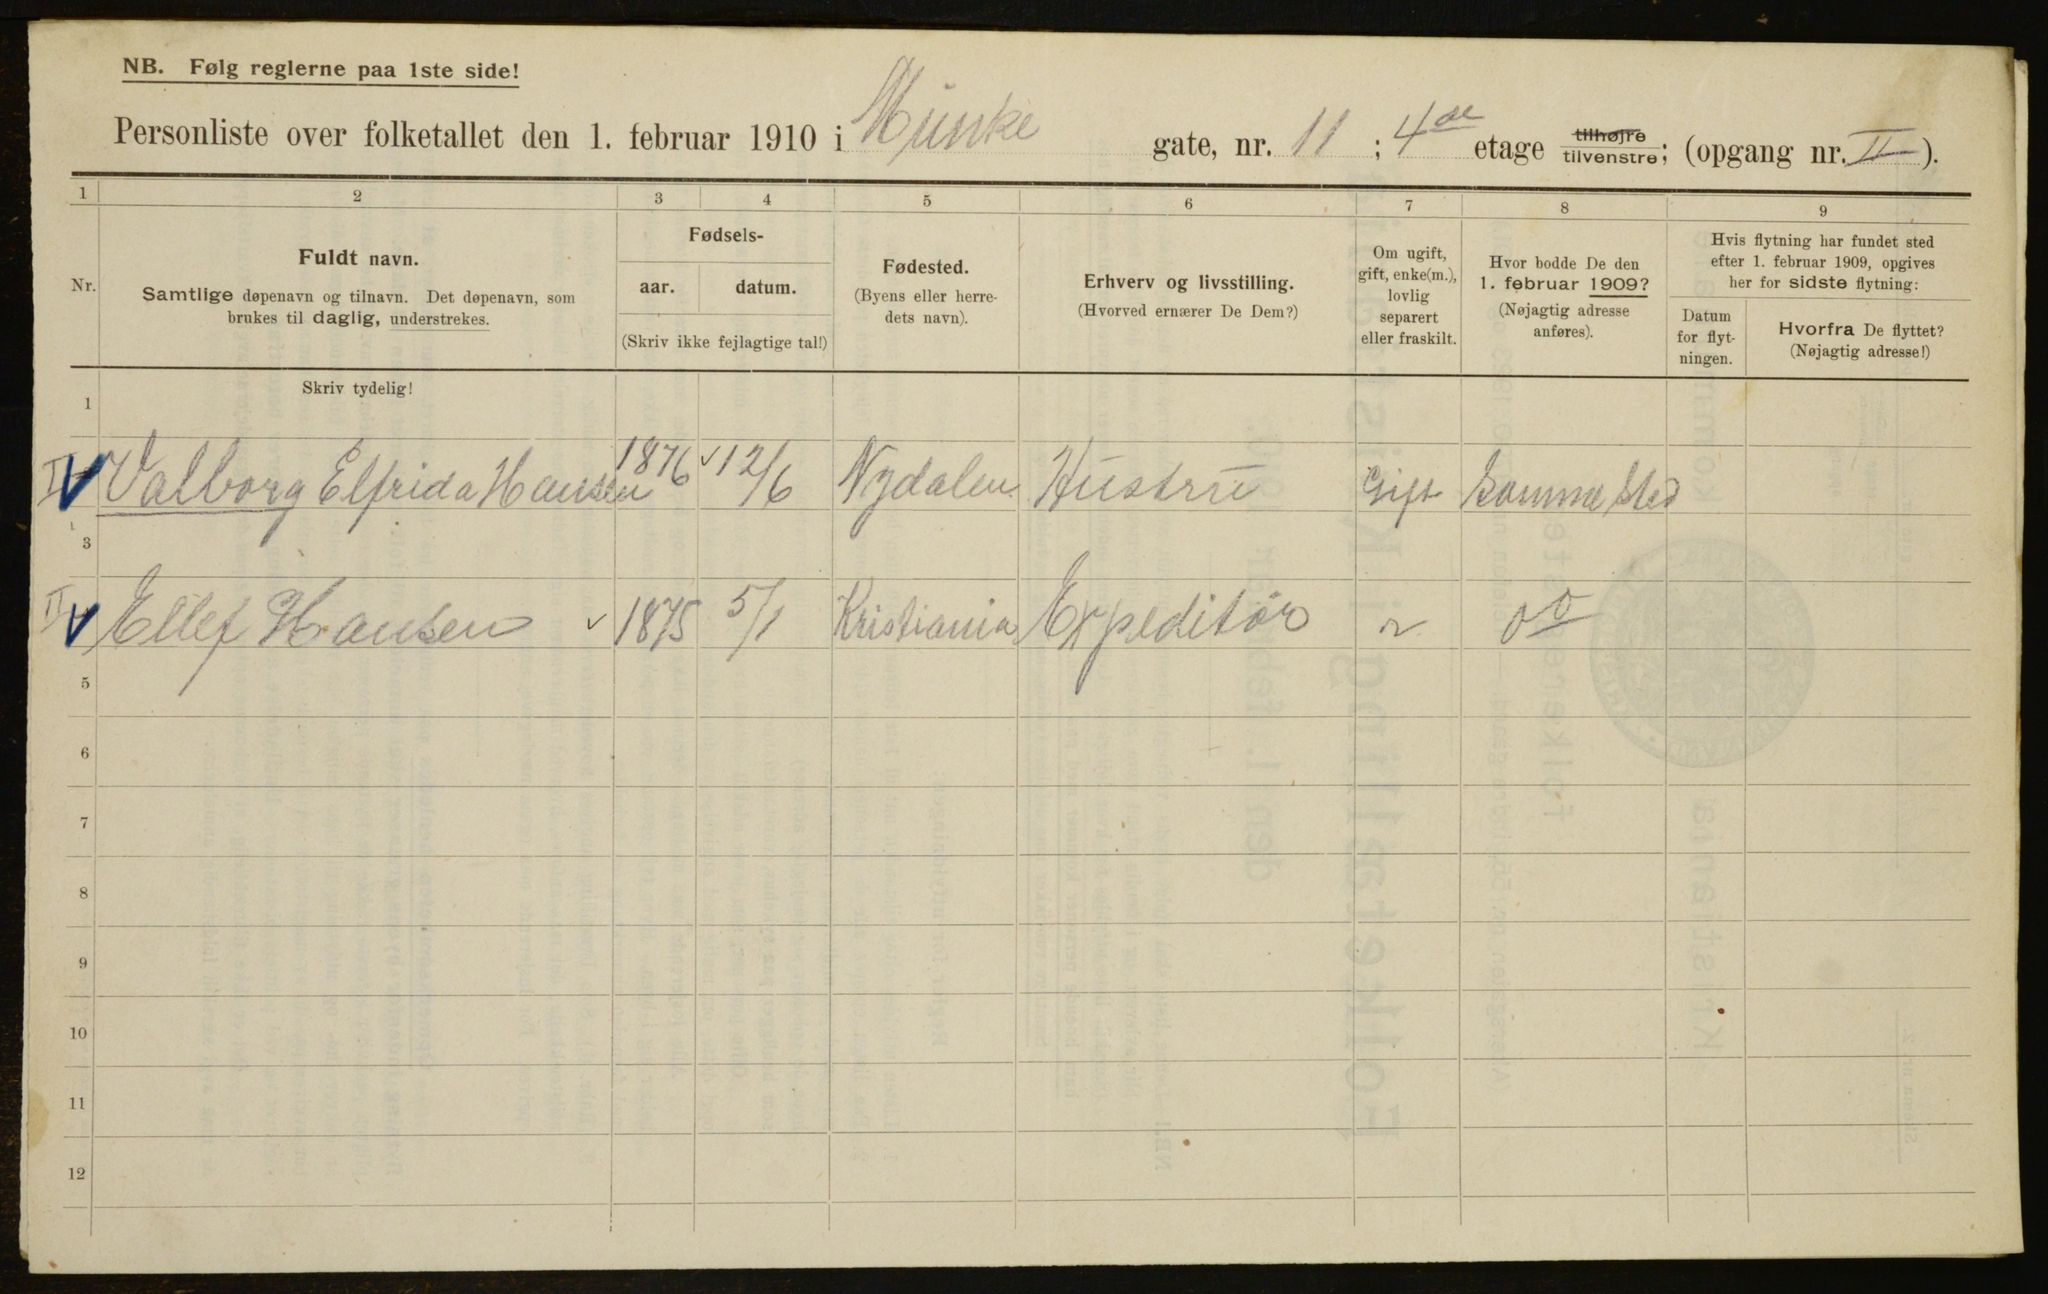 NB. Følg reglerne paa 1ste side!
Personliste over folketallet den 1. februar 1910 i Munke gate, nr. 11 ; 4de etage tilhøjre tilvenstre; (opgang nr. II ).
1 2 3 4 5 6 7 8 9
Nr.
Fuldt navn.
Samtlige døpenavn og tilnavn. Det døpenavn, som
brukes til daglig, understrekes.
Fødsels-
aar. datum.
(Skriv ikke fejlagtige tal!)
Fødested.
(Byens eller herre-
dets navn).
Erhverv og livsstilling.
(Hvorved ernærer De Dem?)
Om ugift,
gift, enke(m.),
lovlig
separert
eller fraskilt.
Hvor bodde De den
1. februar 1909?
(Nøjagtig adresse
anføres).
Hvis flytning har fundet sted
efter 1. februar 1909, opgives
her for sidste flytning:
Datum
for flyt-
ningen.
Hvorfra De flyttet?
(Nøjagtig adresse!)
Skriv tydelig!
1
Valborg Elfrida Hansen 1876 12/6 Nydalen Hustru Gift Samme Sted
3
II Ellef Hansen 1875 5/1 Kristiania Expeditør
5
6
7
8
9
10
11
12